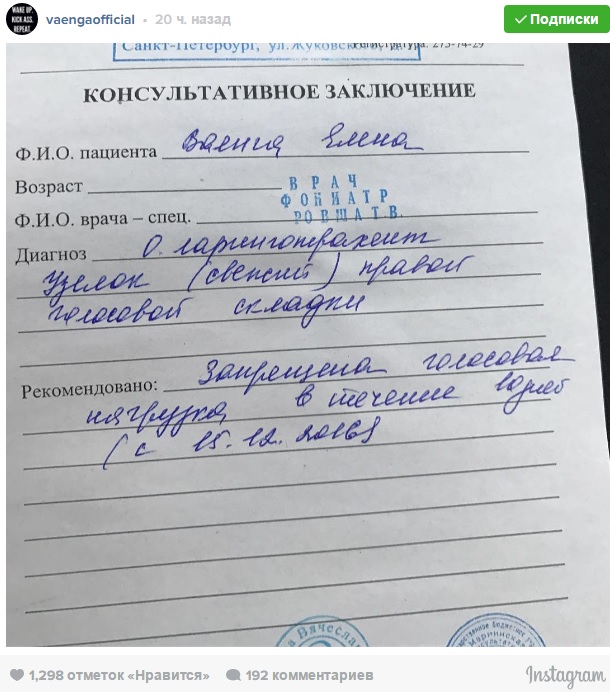 WAKE UP
KICK ASS.
REPEAT
vaengaofficial • 20 ч. назад
Подписки
Санкт-Петербург, ул. Жуковского, д.
Регистратура: 275-74-29
КОНСУЛЬТАТИВНОЕ ЗАКЛЮЧЕНИЕ
Ф.И.О. пациента Ваенга Елена
Возраст
ВРАЧ
Ф.И.О. врача – спец.
ФОНИАТР
РОВША Т.В.
Диагноз О. ларинготрахеит
Узелок (свежий) правой
голосовой складки
Рекомендовано: Запрещена голосовая
нагрузка в течение 10 дней
(с 15.12.2016)
а Вячеслав
Мариинская
1,298 отметок «Нравится»
192 комментариев
Instagram